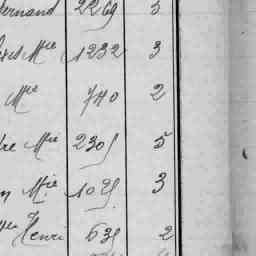 ernand 2269 5
Mie 1232 3
Mie 740 2
re Mie 2305 5
n Mie 1025 3
Henri 635 2